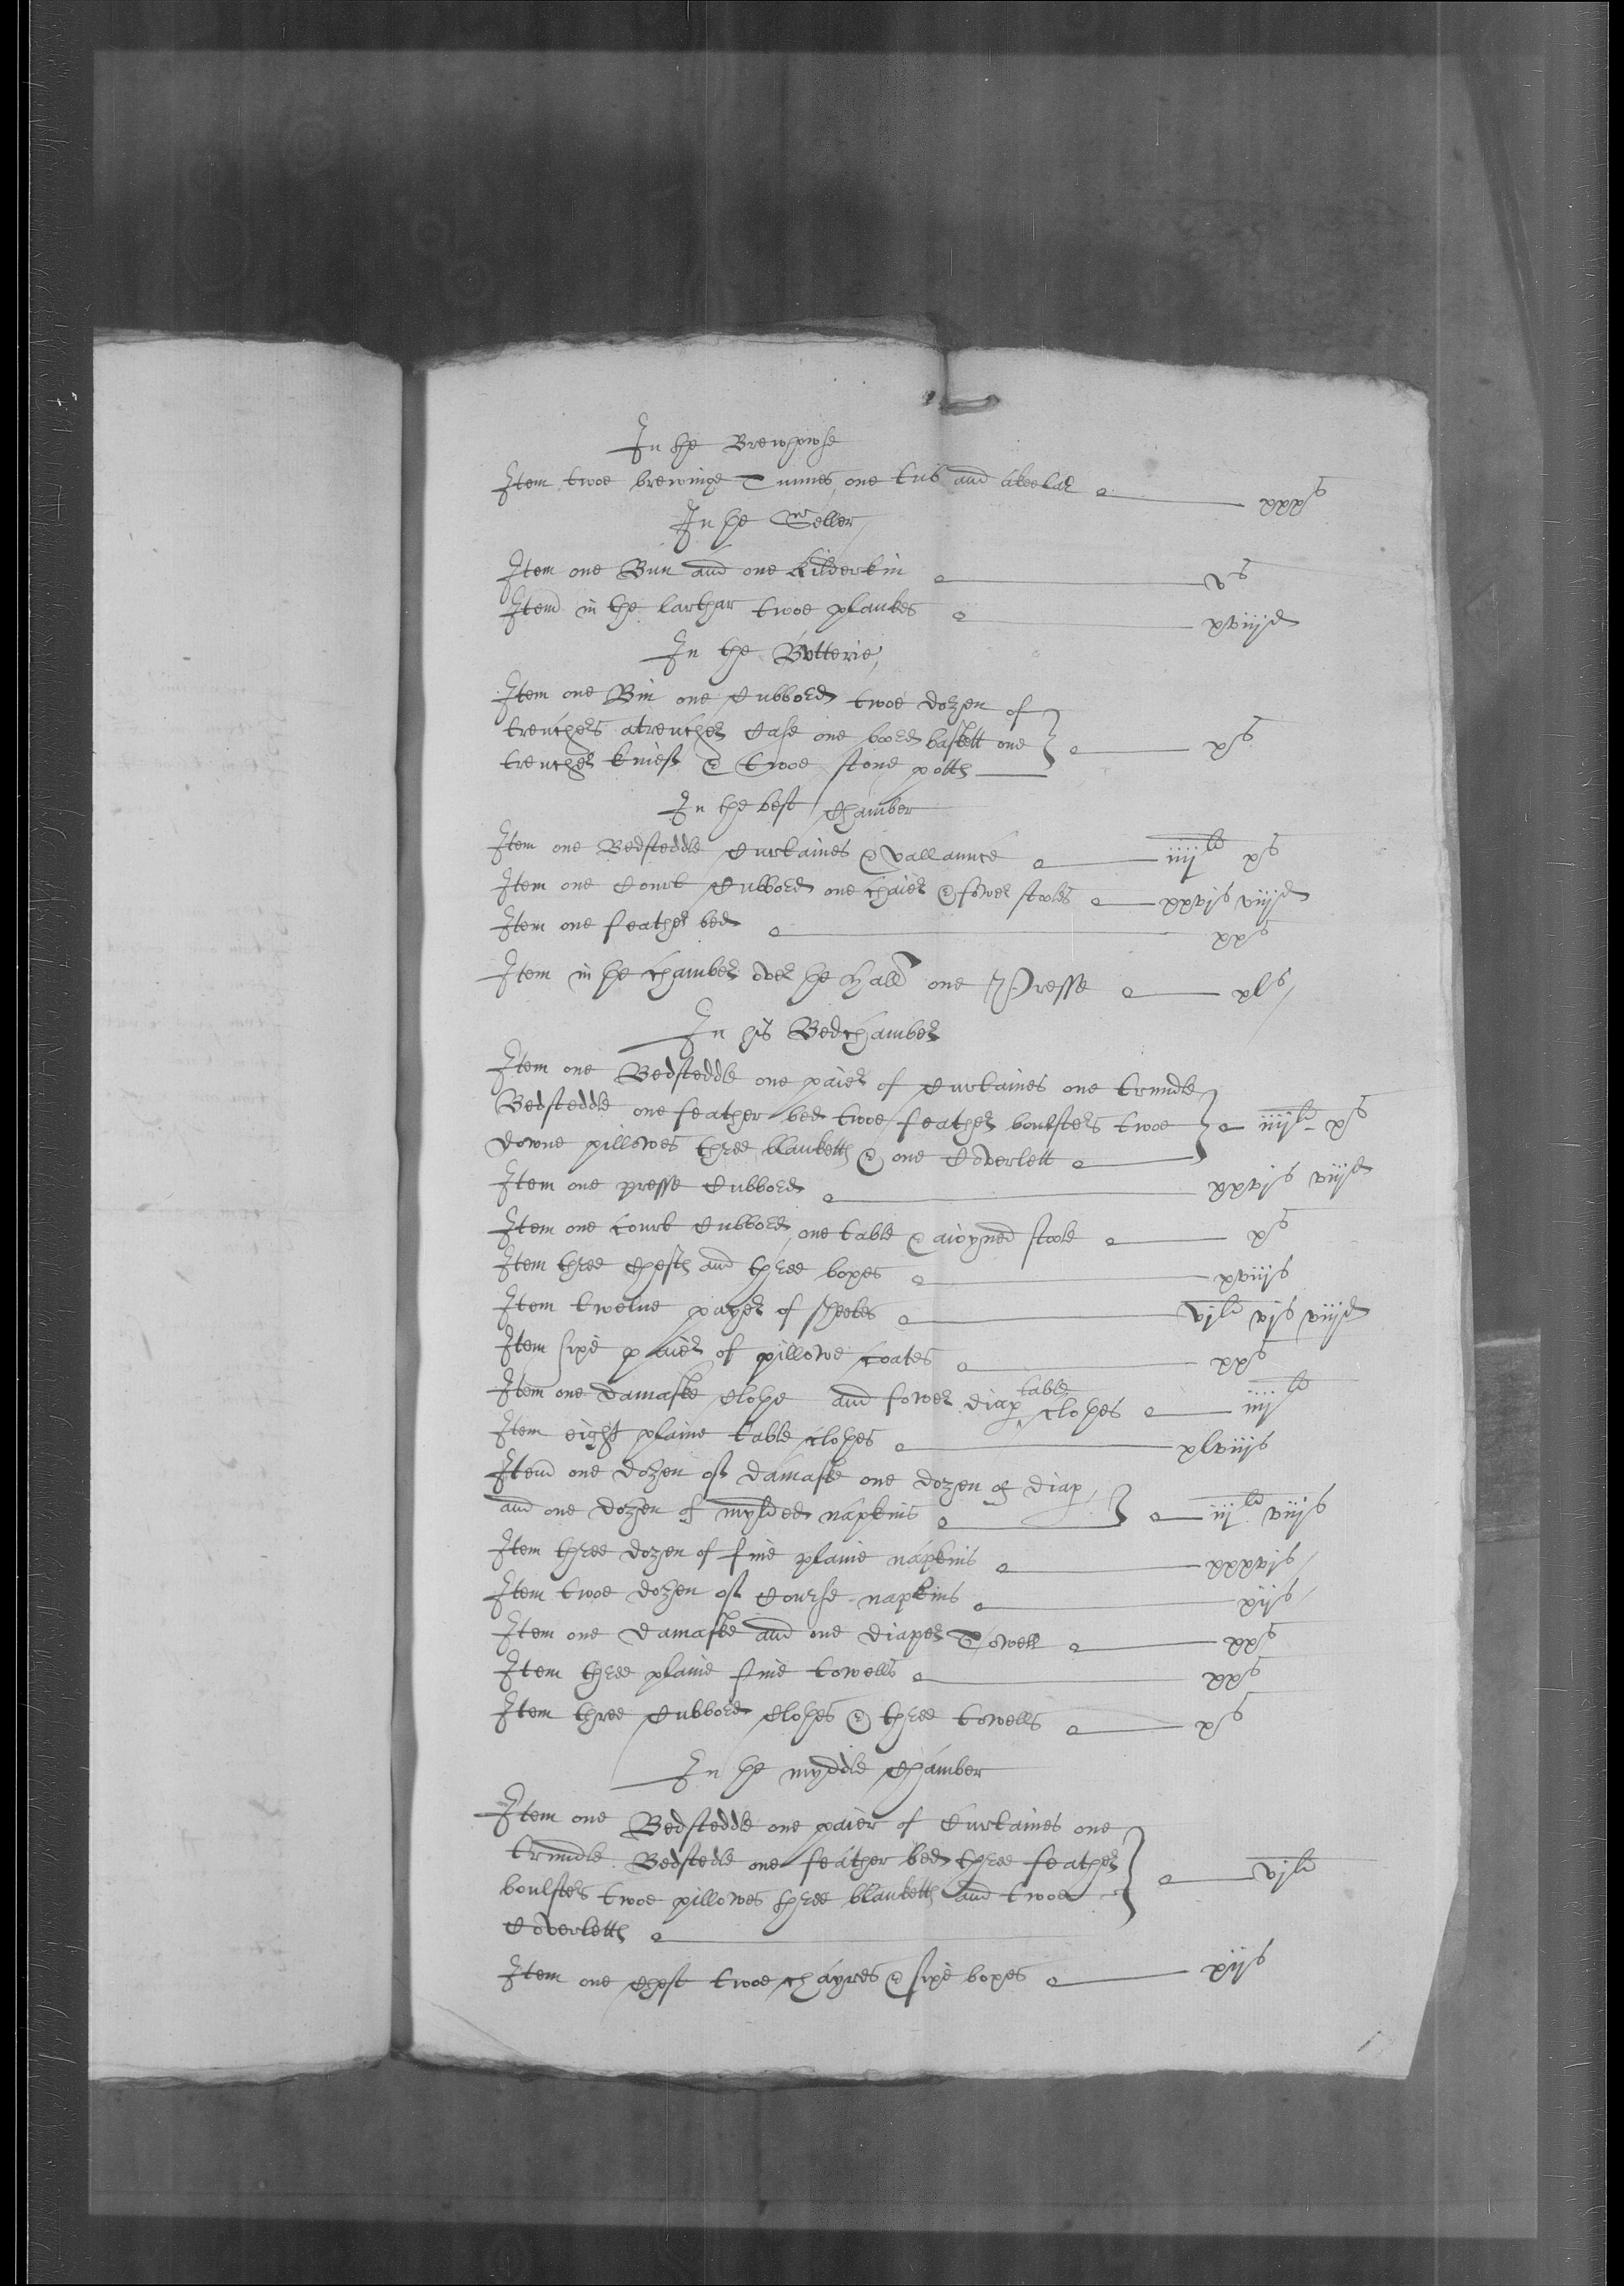 In the Brewhowse
Item twoe brewinge Tunnes one tub and a keelar xxxs
In the Seller
Item one Bun and one Kilderkin vs
Item in the larthar twoe plankes xviijd
In the Butterie
Item one Bin one Cubbord twoe dozen of
trenchers a trencher Case one bord baskett one
trencher knief & twoe stone potts xs
In the best Chamber
Item one Bedsteddle Curtaines & vallaunce iiijli xs
Item one Court Cubbord one chaier & fower stooles xxvjs viijd
Item one feather bed xxs
Item in the chamber over the Hall one Presse xls
In his Bedchamber
Item one Bedsteddle one paier of Curtaines one trundle
Bedsteddle one feather bed twoe feather boulsters twoe
downe pillowes three blanketts & one Coverlett iiijli xs
Item one presse Cubbord xxvjs viijd
Item one Court Cubbord one table & a ioyned stoole xs
Item three Chests and three boxes xviijs
Item twelve payer of sheetes vjli vjs viijd
Item sixe paier of pillowe coates xxs
Item one damaske Clothe and fower diap table clothes iiijli
Item eight plaine table clothes xlviijs
Item one dozen of damaske one dozen of diap
and one dozen of myldred napkins iijli viijs
Item three dozen of fine plaine napkins xxxvjs
Item twoe dozen of Course napkins xijs
Item one damaske and one diaper Towell xxs
Item three plaine fine towells xxs
Item three Cubbord Clothes & three towells xs
In the myddle Chamber
Item one Bedsteddle one paier of Curtaines one
trundle Bedstedle one feather bed three feather
boulsters twoe pillowes three blanketts and twoe
Coverletts vjli
Item one Chest twoe chayres & sixe boxes xijs